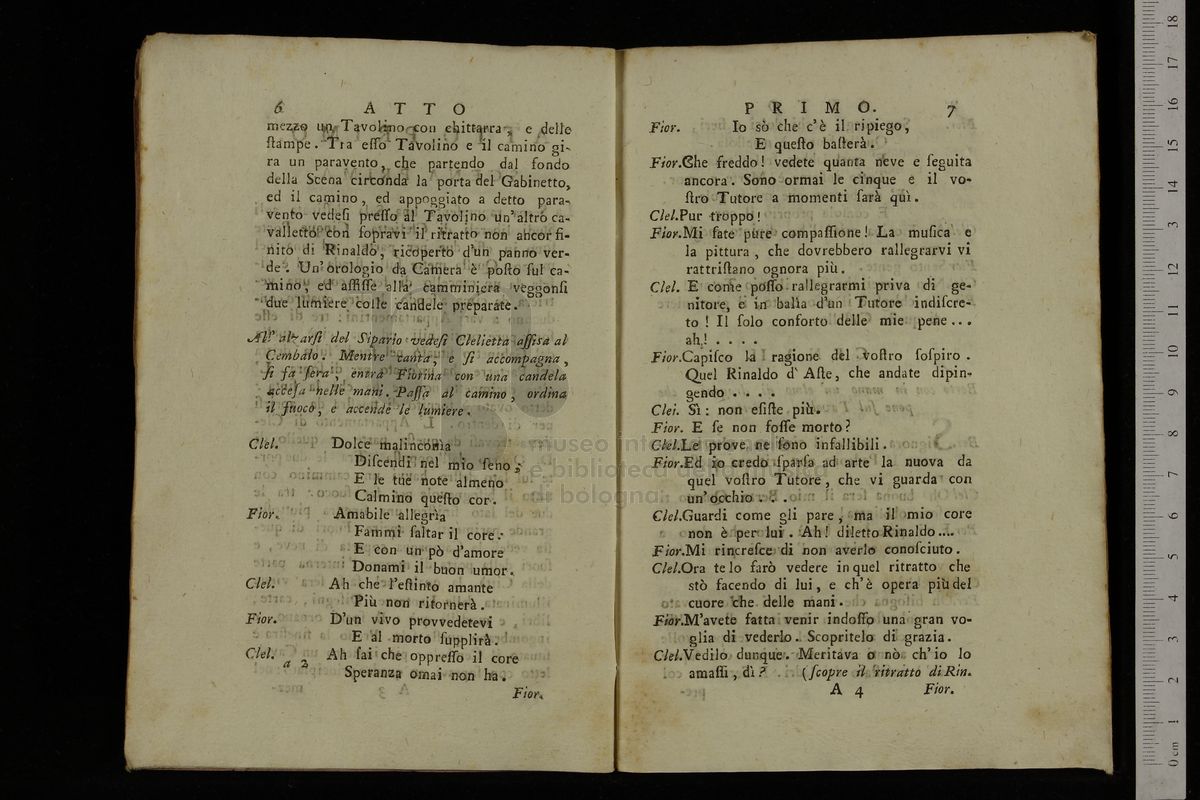 6 ATTO
mezzo un Tavolino con chittarra, e delle
ſtampe. Tra eſſo Tavolino e il camino gi-
ra un paravento, che partendo dal fondo
della Scena circonda la porta del Gabinetto,
ed il camino, ed appoggiato a detto para-
vento vedeſi preſſo al Tavolino un'altro ca-
valletto con ſopravi il ritratto non ancor fi-
nito di Rinaldo, ricoperto d'un panno ver-
de. Un'orologio da Camera è poſto ſul ca-
mino, ed affiſſe alla camminiera veggonſi
due lumiere colle candele preparate.
All' alzarſi del Sipario vedeſi Clelietta aſſiſa al
Cembalo. Mentre canta, e ſi accompagna,
ſi fa ſera, entra Fiorina con una candela
acceſa nelle mani. Paſſa al camino, ordina
il fuoco, e accende le lumiere.
Clel. Dolce malinconìa
Diſcendi nel mio ſeno,
E le tue note almeno
Calmino queſto cor.
Fior. Amabile allegrìa
Fammi ſaltar il core:
E con un pò d'amore
Donami il buon umor.
Clel. Ah che l'eſtinto amante
Più non ritornerà.
Fior. D'un vivo provvedetevi
E al morto ſupplirà.
Clel. Ah ſai che oppreſſo il core
a 2
Speranza omai non ha.
Fior.
PRIMO. 7
Fior. Io sò che c'è il ripiego,
E queſto baſterà.
Fior.Che freddo! vedete quanta neve e ſeguita
ancora. Sono ormai le cinque e il vo-
ſtro Tutore a momenti ſarà quì.
Clel.Pur troppo!
Fior.Mi fate pure compaſſione! La muſica e
la pittura, che dovrebbero rallegrarvi vi
rattriſtano ognora più.
Clel. E come poſſo rallegrarmi priva di ge-
nitore, e in balìa d'un Tutore indiſcre-
to! Il ſolo conforto delle mie pene...
ah! . . . .
Fior.Capiſco la ragione del voſtro ſoſpiro.
Quel Rinaldo d'Aſte, che andate dipin-
gendo . . . .
Clei. Sì: non eſiſte più.
Fior. E ſe non foſſe morto?
Clel.Le prove ne ſono infallibili.
Fior.Ed io credo ſparſa ad arte la nuova da
quel voſtro Tutore, che vi guarda con
un'occhio . . .
Clel.Guardi come gli pare, ma il mio core
non è per lui. Ah! diletto Rinaldo....
Fior.Mi rincreſce di non averlo conoſciuto.
Clel.Ora te lo farò vedere in quel ritratto che
stò facendo di lui, e ch'è opera più del
cuore che delle mani.
Fior.M'avete fatta venir indoſſo una gran vo-
glia di vederlo. Scopritelo di grazia.
Clel.Vedilo dunque. Meritava o nò ch'io lo
amaſſi, dì? (ſcopre il ritratto di Rin.
A 4 Fior.
museo internazionale
e biblioteca della musica
di bologna
0 cm 1 2 3 4 5 6 7 8 9 10 11 12 13 14 15 16 17 18